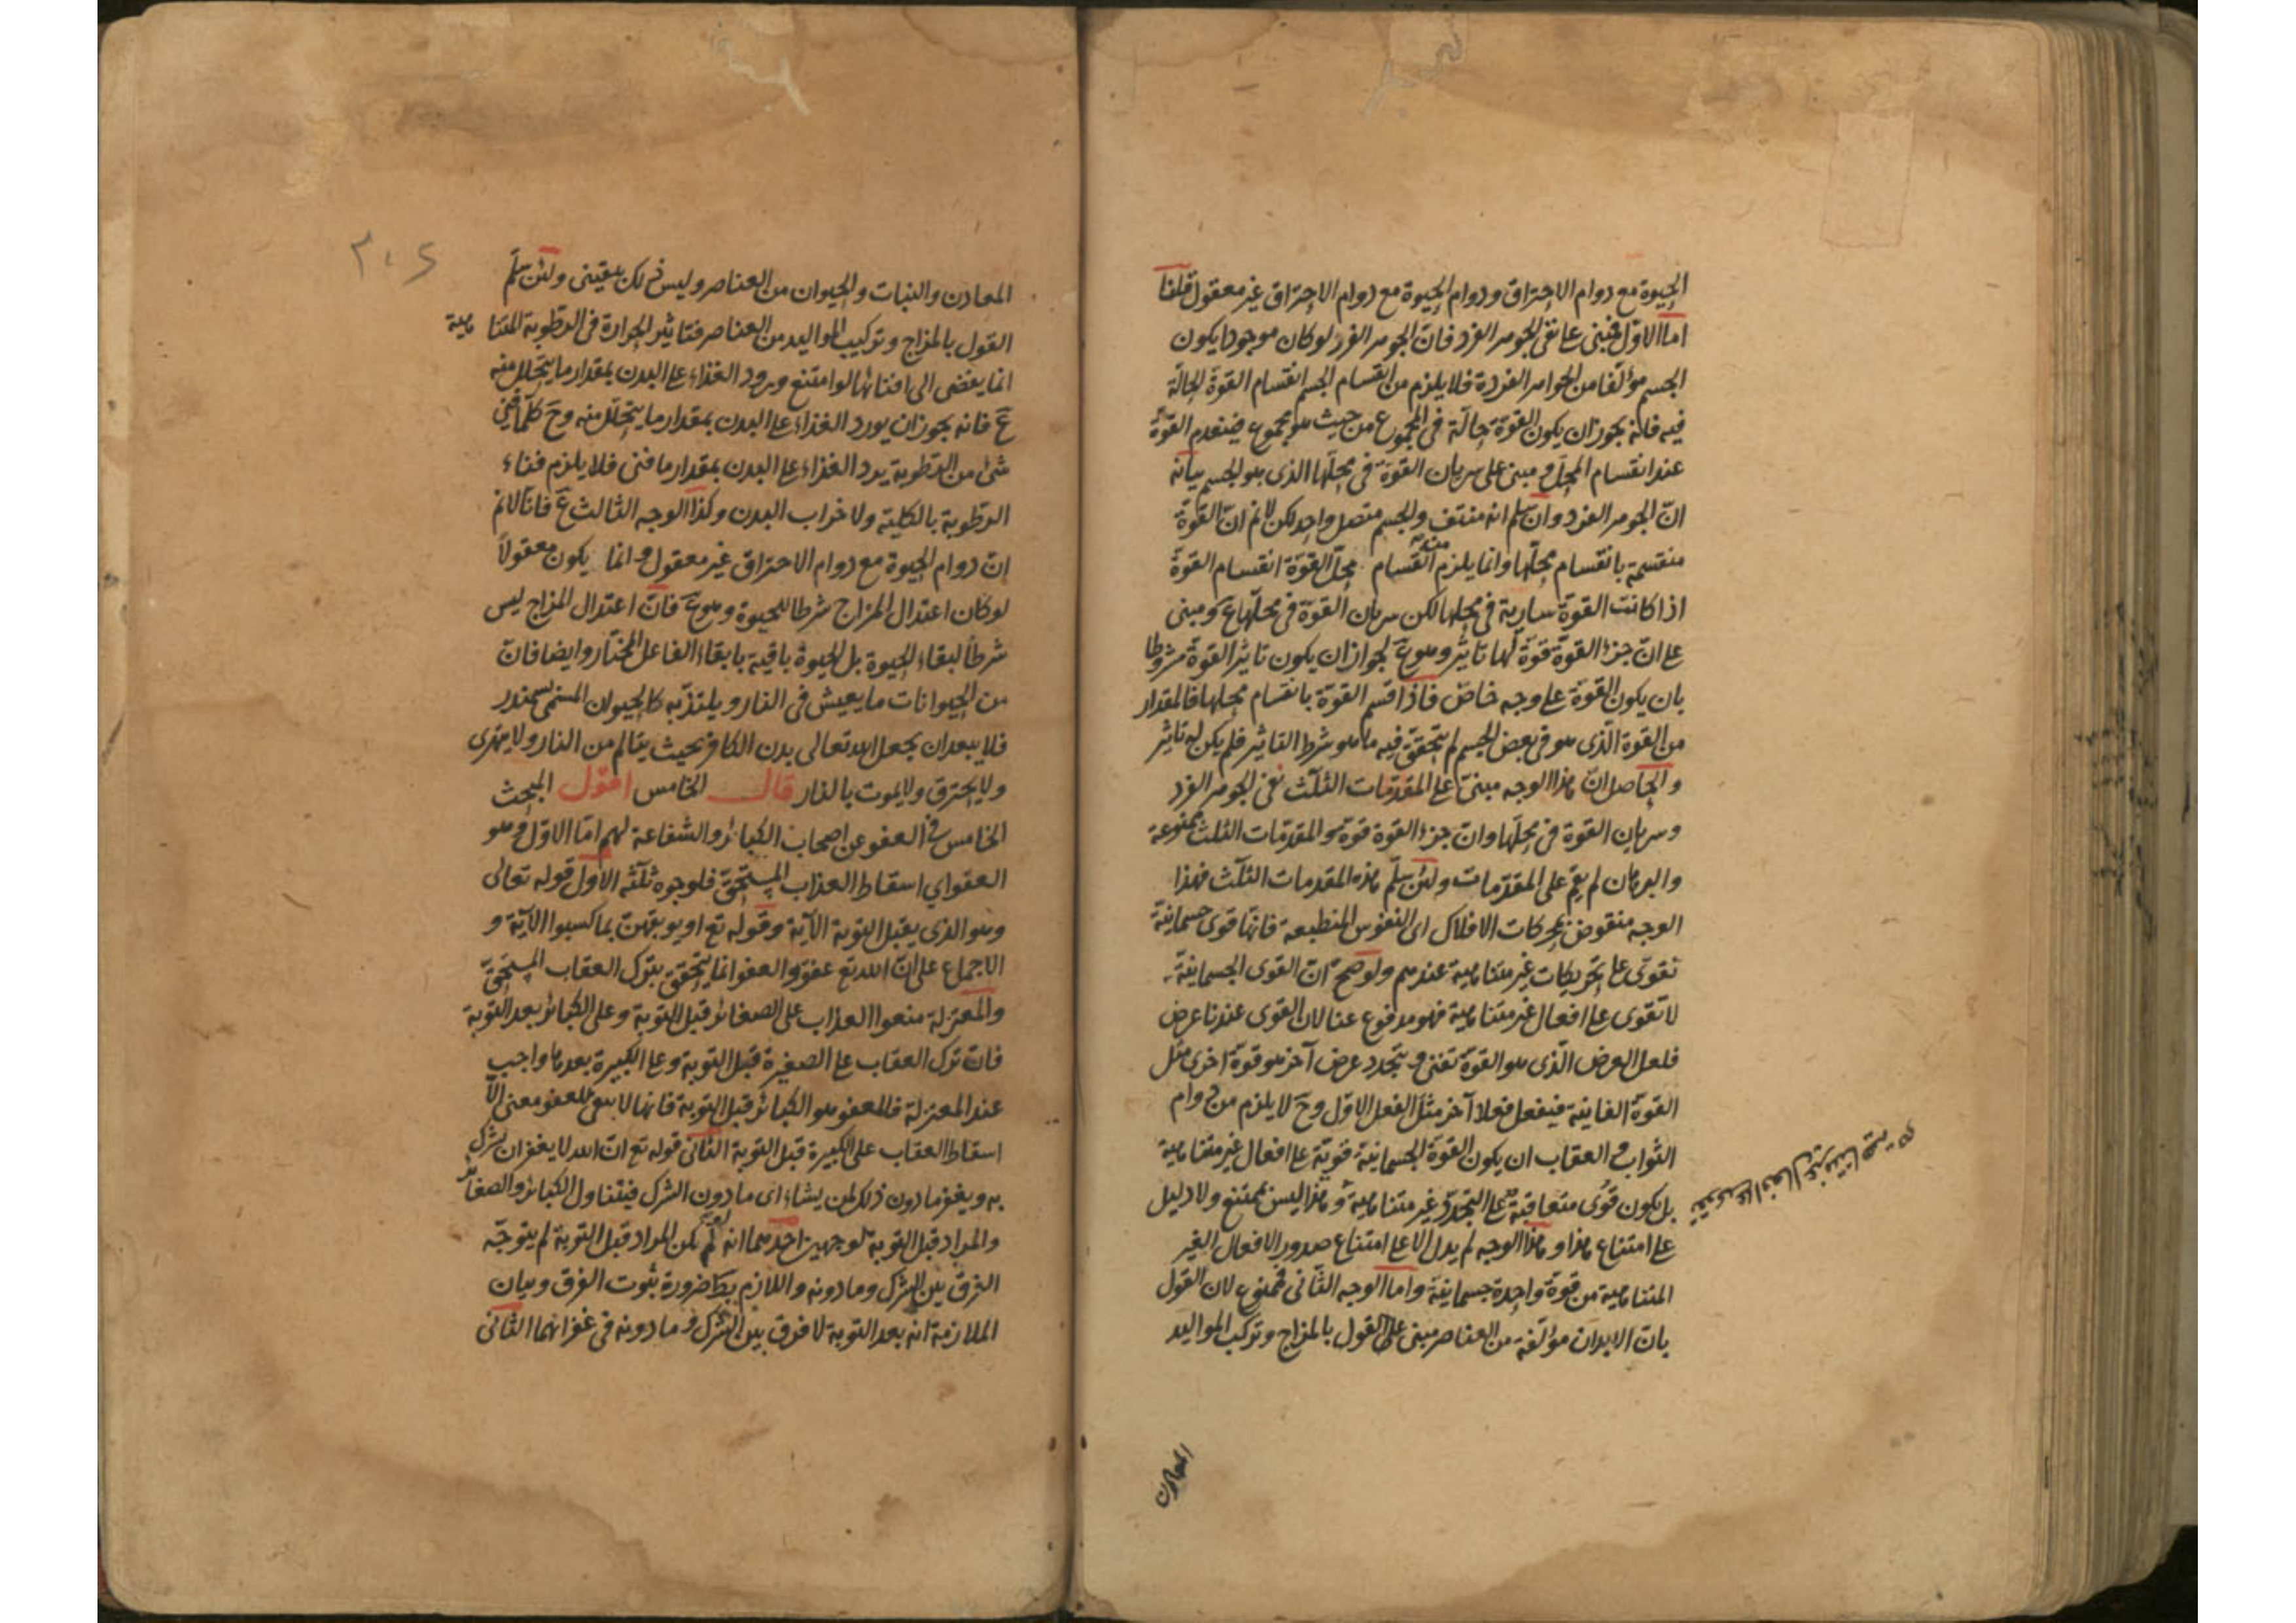 الحيوة مع دوام الاحتراق ودوام الحيوة مع دوام الاحتراق غير معقول قلنا
اما الاول فمبنى على نفى الجوهر الفرد فان الجوهر الفرد لو كان موجودا يكون
الجسم مؤلفا من الجواهر الفردة فلا يلزم من انقسام الجسم انقسام القوة الحالة
فيه فانه يجوز ان يكون القوة حالة فى المجموع من حيث هو مجموع فينعدم القوة
عند انقسام المحل و مبنى على سريان القوة فى محلها الذى هو الجسم بيانه
ان الجوهر الفرد وان سلم انه منتف والجسم متصل واحد لكن لانم ان القوة
منقسمة بانقسام محلها وانما يلزم من انقسام محل القوة انقسام القوة
اذا كانت القوة سارية فى محلها لكن سريان القوة فى محلها ع و مبنى
على ان جزء القوة قوة لها تاثير وهو ع لجواز ان يكون تاثير القوة مشروطا
بان يكون القوة على وجه خاص فاذا قسم القوة بانقسام محلها فالمقدار
من القوة الذى هو فى بعض الجسم لم يتحقق فيه ما هو شرط التاثير فلم يكن له تاثير
والحاصل ان هذا الوجه مبنى على المقدمات الثلث نفى الجوهر الفرد
وسريان القوة فى محلها وان جزء القوة قوة و المقدمات الثلث ممنوعة
والبرهان لم يقم على المقدمات ولئن سلم هذه المقدمات الثلث فهذا
الوجه منقوض بمحركات الافلاك اى النفوس المنطبعة فانها قوى جسمانية
تقوى على تحريكات غير متناهية عندهم ولو صح ان القوى الجسمانية
لا تقوى على افعال غير متناهية فهو مدفوع عنا لان القوى عندنا عرض
فلعل العرض الذى هو القوة تفنى و يتجدد عرض آخر هو قوة اخرى مثل
القوة الفانية فيفعل فعلا آخر مثل الفعل الاول وح لا يلزم من دوام
الثواب و العقاب ان يكون القوة الجسمانية قوية على افعال غير متناهية
بل يكون قوى متعاقبة على التجدد غير متناهية و هذا ليس بممتنع ولا دليل
على امتناع هذا و هذا الوجه لم يدل الا على امتناع صدور الافعال الغير
المتناهية من قوة واحدة جسمانية واما الوجه الثانى فممنوع لان القول
بان الابدان مؤلفة من العناصر مبنى على القول بالمزاج وتركب المواليد
تقوى على افعال غير متناهية
المعادن
٢٠٤
المعادن والنبات والحيوان من العناصر وليس ذلك بيقينى ولئن سلم
القول بالمزاج وتركيب المواليد من العناصر فتاثير الحرارة فى الرطوبة المتناهية
انما يفضى الى افنائها لو امتنع ورود الغذاء على البدن بمقدار ما يتحلل منه
ع فانه يجوز ان يورد الغذاء على البدن بمقدار ما يتحلل منه وح كلما فنى
شئ من الرطوبة يرد الغذاء على البدن بمقدار ما فنى فلا يلزم فناء
الرطوبة بالكلية ولا خراب البدن وكذا الوجه الثالث ع فانا لانم
ان دوام الحيوة مع دوام الاحتراق غير معقول و انما يكون معقولا
لو كان اعتدال المزاج شرطا للحيوة وهو ع فان اعتدال المزاج ليس
شرطا لبقاء الحيوة بل الحيوة باقية بابقاء الفاعل المختار وايضا فان
من الحيوانات ما يعيش فى النار و يلتذ به كالحيوان المسمى بسمندر
فلا يبعد ان يجعل الله تعالى بدن الكافر بحيث يتالم من النار ولا يتهرى
ولا يحترق ولا يموت بالنار قال الخامس اقول المبحث
الخامس فى العفو عن اصحاب الكبائر والشفاعة لهم اما الاول و هو
العفو اى اسقاط العذاب المستحق فلوجوه ثلثة الاول قوله تعالى
وهو الذى يقبل التوبة الآية وقوله تع او يوبقهن بما كسبوا الآية و
الاجماع على ان الله تع عفو والعفو انما يتحقق بترك العقاب المستحق
والمعتزلة منعوا العذاب على الصغائر قبل التوبة وعلى الكبائر بعد التوبة
فان ترك العقاب على الصغيرة قبل التوبة وعلى الكبيرة بعدها واجب
عند المعتزلة فالمعفو هو الكبائر قبل التوبة فانها لا يبقى للعفو معنى الا
اسقاط العقاب على الكبيرة قبل التوبة الثانى قوله تع ان الله لا يغفر ان يشرك
به ويغفر ما دون ذلك لمن يشاء اى ما دون الشرك فيتناول الكبائر والصغائر
والمراد قبل التوبة لوجهين احدهما انه لو لم يكن المراد قبل التوبة لم يتوجه
الفرق بين الشرك وما دونه واللازم بط ضرورة ثبوت الفرق وبيان
الملازمة انه بعد التوبة لا فرق بين الشرك و ما دونه فى غفرانهما الثانى